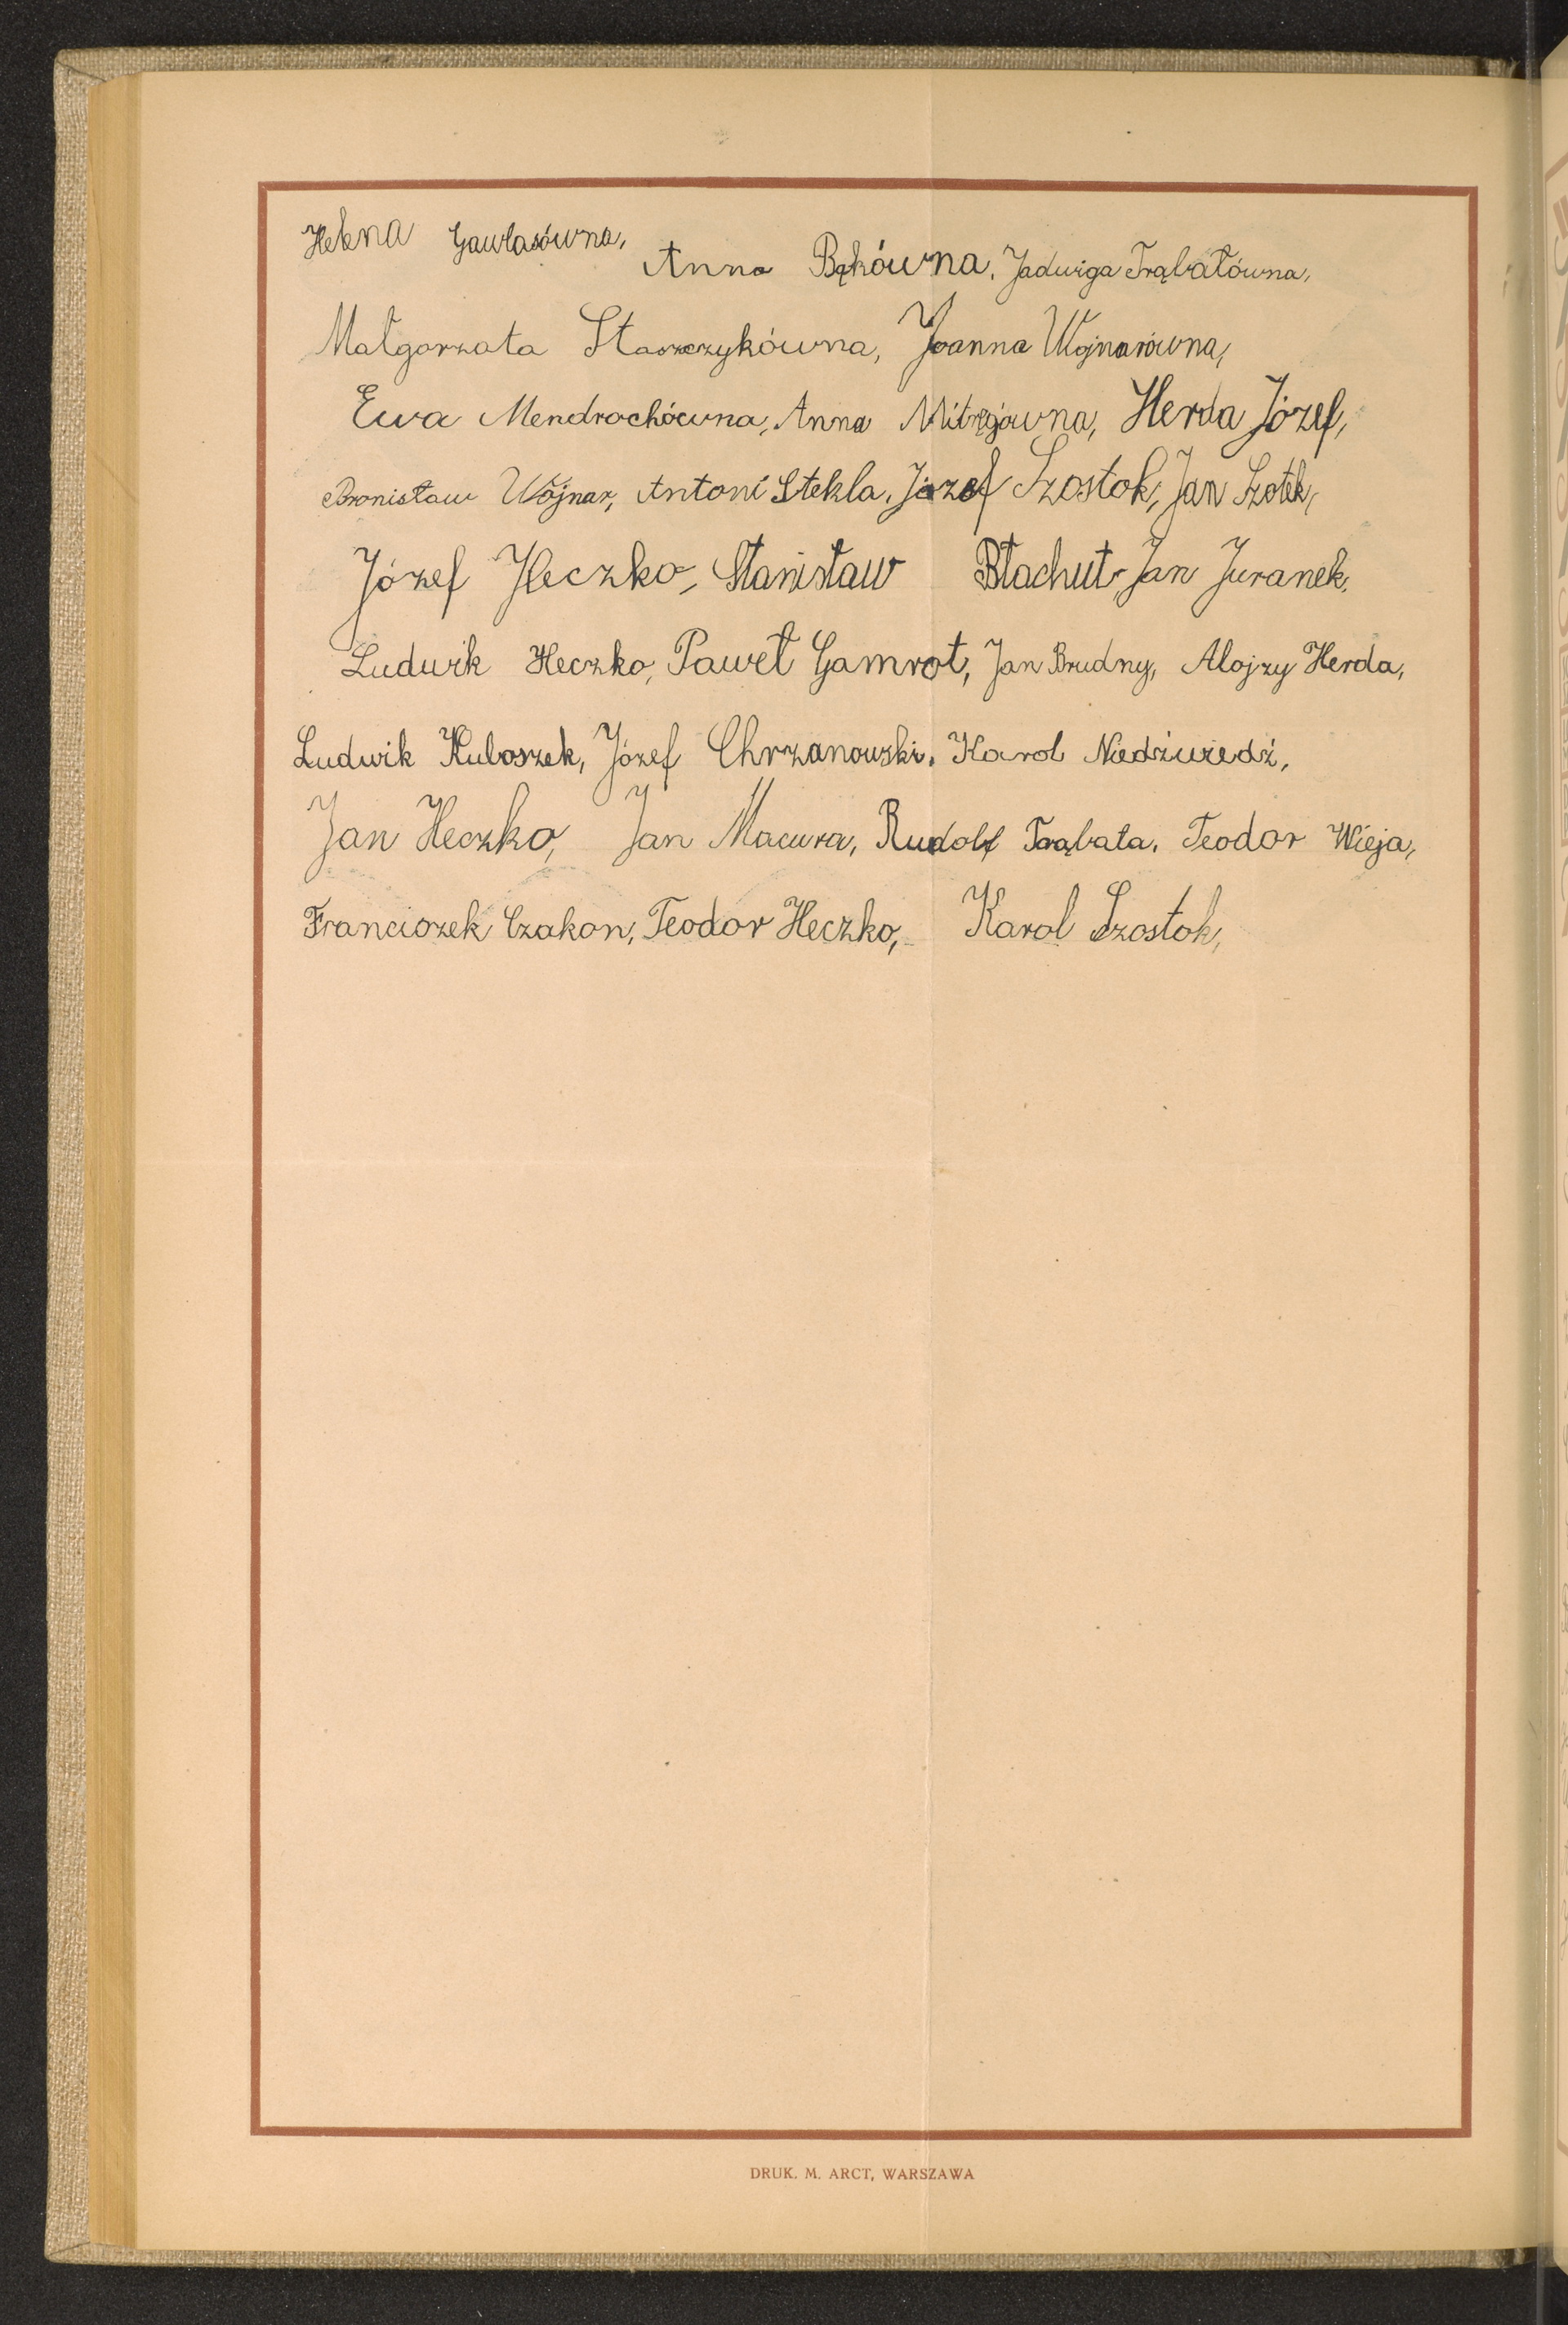 Helena Gawlasówna, Anna Bąkówna, Jadwiga Trąbałówna,
Małgorzata Staszczykówna, Joanna Wojnarówna,
Ewa Mendrochówna, Anna Mitręjówna, Herda Józef,
Bronisław Wójnar, Antoni Stekla, Józef Szostok, Jan Szotek,
Józef Heczko, Stanisław Błachut, Jan Juranek,
Ludwik Heczko, Paweł Gamrot, Jan Brudny, Alojzy Herda,
Ludwik Kuboszek, Józef Chrzanowski, Karol Niedźwiedź,
Jan Heczko, Jan Macura, Rudolf Trąbała, Teodor Wieja,
Franciszek Czakon, Teodor Heczko, Karol Szostok,
DRUK. M. ARCT, WARSZAWA